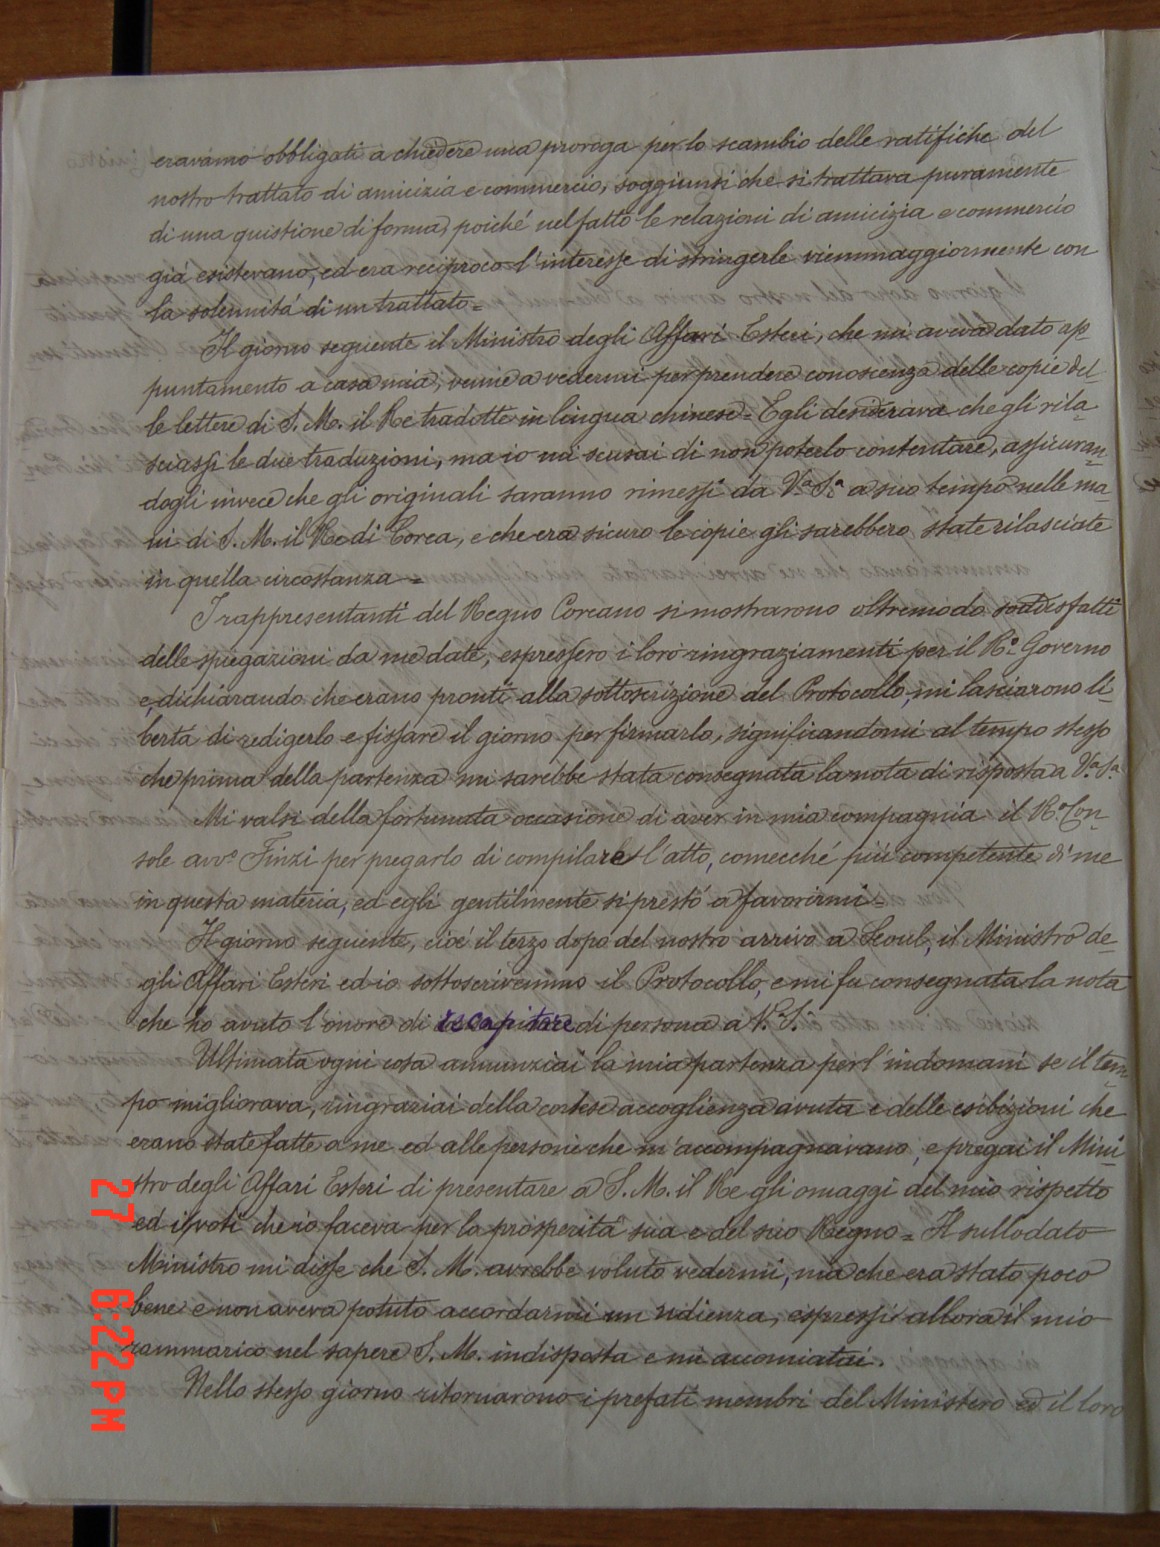 eravamo obbligati a chiedere una proroga per lo scambio delle ratifiche del
nostro trattato di amicizia e commercio, soggiunsi che si trattava puramente
di una quistione di forma, poiché nel fatto le relazioni di amicizia e commercio
giá esistevano, ed era reciproco l'interesse di stringerle viemmaggiormente con
la solennitá di un trattato=
Il giorno seguente il Ministro degli Affari Esteri, che mi aveva dato ap-
puntamento a casa mia, venne a vedermi per prendere conoscenza delle copie del-
le lettere di S. M. il Re tradotte in lingua chinese= Egli desiderava che gli rila-
sciassi le due traduzioni, ma io mi scusai di non poterlo contentare, assicuran-
dogli invece che gli originali saranno rimessi da V.a S.a a suo tempo nelle ma-
ni di S. M. il Re di Corea, e che era sicuro le copie gli sarebbero state rilasciate
in quella circostanza=
I rappresentanti del Regno Coreano si mostrarono oltremodo soddisfatti
delle spiegazioni da me date, espressero i loro ringraziamenti per il R.o Governo
e, dichiarando che erano pronti alla sottoscrizione del Protocollo, mi lasciarono li-
bertá di redigerlo e fissare il giorno per firmarlo, significandomi al tempo stesso
che prima della partenza mi sarebbe stata consegnata la nota di risposta a V.a S.a
Mi valsi della fortunata occasione di aver in mia compagnia il R.o Con-
sole avv.o Finzi per pregarlo di compilare l'atto, comecché piú competente di me
in questa materia, ed egli gentilmente si prestó a favorirmi=
Il giorno seguente, cioé il terzo dopo del nostro arrivo a Seoul, il Ministro de-
gli Affari Esteri ed io sottoscrivemmo il Protocollo, e mi fu consegnata la nota
che ho avuto l'onore di recapitare di persona a V.a S.a
Ultimata ogni cosa annunziai la mia partenza per l'indomani se il tem-
po migliorava, ringraziai della cortese accoglienza avuta e delle esibizioni che
erano state fatte a me ed alle persone che m'accompagnavano, e pregai il Mini-
stro degli Affari Esteri di presentare a S. M. il Re gli omaggi del mio rispetto
ed i voti che io faceva per la prosperitá sua e del suo Regno= Il sullodato
Ministro mi disse che S. M. avrebbe voluto vedermi, ma che era stato poco
bene e non aveva potuto accordarmi un udienza, espressi allora il mio
rammarico nel sapere S. M. indisposta e mi accomiatai.
Nello stesso giorno ritornarono i prefati membri del Ministero ed il loro
27 6:22 PM